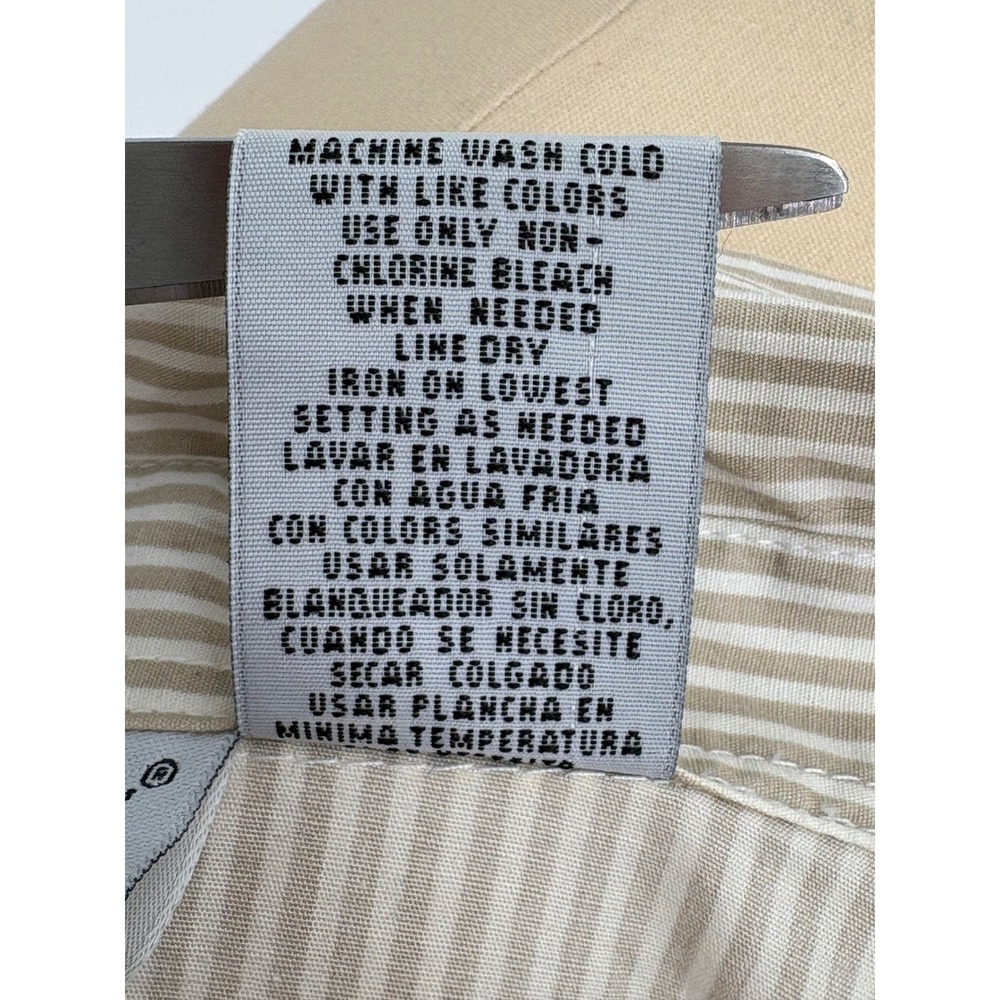 MACHINE WASH COLD
WITH LIKE COLORS
USE ONLY NON-
CHLORINE BLEACH
WHEN NEEDED
LINE DRY
IRON ON LOWEST
SETTING AS NEEDED
LAVAR EN LAVADORA
CON AGUA FRIA
CON COLORS SIMILARES
USAR SOLAMENTE
BLANQUEADOR SIN CLORO,
CUANDO SE NECESITE
SECAR COLGADO
USAR PLANCHA EN
MINIMA TEMPERATURA
®